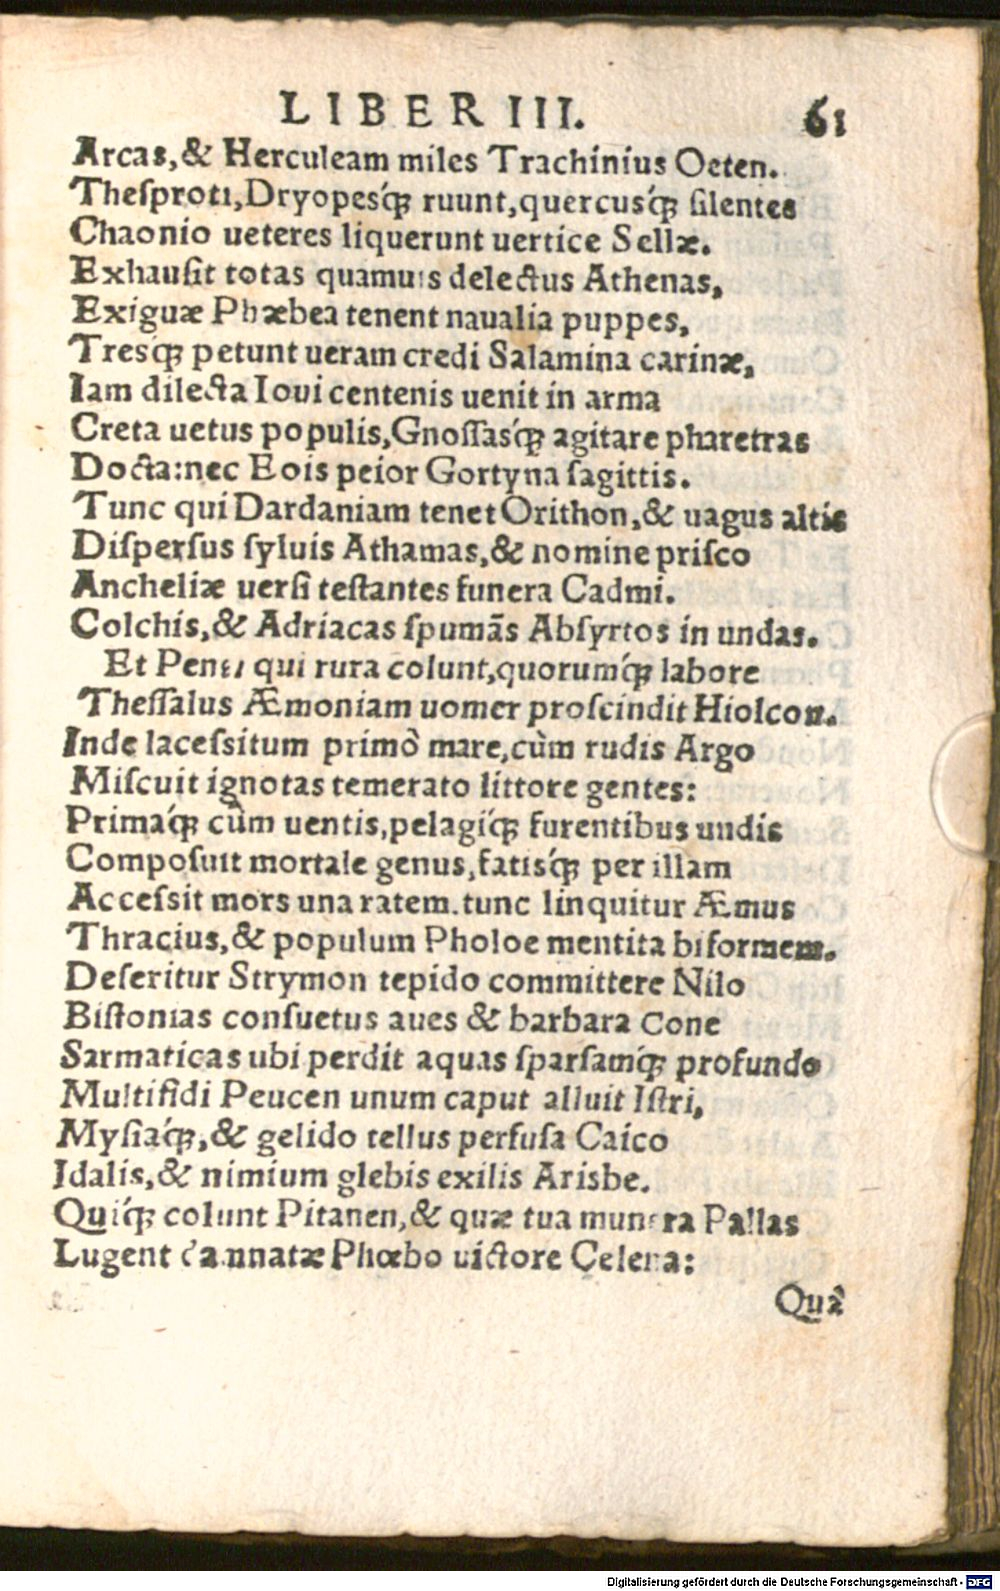 LIBER III. 61
Arcas, & Herculeam miles Trachinius Oeten.
Theſproti, Dryopeśq; ruunt, quercuśq; ſilentes
Chaonio ueteres liquerunt uertice Sellæ.
Exhauſit totas quamuis delectus Athenas,
Exiguæ Phæbea tenent naualia puppes,
Tresq́; petunt ueram credi Salamina carinæ,
Iam dilecta Ioui centenis uenit in arma
Creta uetus populis, Gnoſſasq́; agitare pharetras
Docta: nec Eois peior Gortyna ſagittis.
Tunc qui Dardaniam tenet Orithon, & uagus altis
Diſperſus ſyluis Athamas, & nomine priſco
Ancheliæ uerſi teſtantes funera Cadmi.
Colchis, & Adriacas ſpumãs Abſyrtos in undas.
Et Penei qui rura colunt, quorumq́; labore
Theſſalus Æmoniam uomer proſcindit Hiolcon.
Inde laceſsitum primò mare, cùm rudis Argo
Miſcuit ignotas temerato littore gentes:
Primaq́; cùm uentis, pelagiq́; furentibus undis
Compoſuit mortale genus, fatisq́; per illam
Acceſsit mors una ratem. tunc linquitur Æmus
Thracius, & populum Pholoe mentita biformem.
Deſeritur Strymon tepido committere Nilo
Biſtonias conſuetus aues & barbara Cone
Sarmaticas ubi perdit aquas ſparſamq́; profundo
Multifidi Peucen unum caput alluit Iſtri,
Myſiaq́;, & gelido tellus perfuſa Caico
Idalis, & nimium glebis exilis Arisbe.
Quiq́; colunt Pitanen, & quæ tua munera Pallas
Lugent damnatæ Phœbo uictore Celena:
Quà
Digitalisierung gefördert durch die Deutsche Forschungsgemeinschaft - DFG